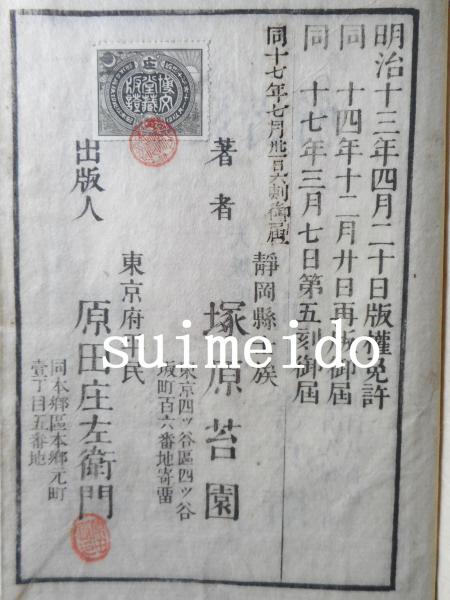 明治十三年四月二十日版權免許
同 十四年十二月廿日再版御屆
同 十七年三月七日第五刻御屆
同十七年七月卅一日六刻御屆
靜岡縣 族
著者 塚原苔園
東京四ツ谷區四ツ谷
坂町百六番地寄留
東京府平民
出版人 原田庄左衛門
同本鄉區本鄉元町
壹丁目五番地
博文
堂藏
版證
suimeido